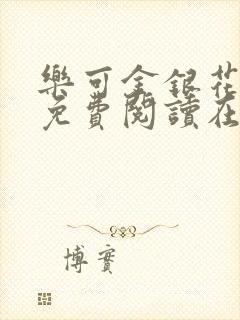 樂可金銀花
免費閱讀在
博實